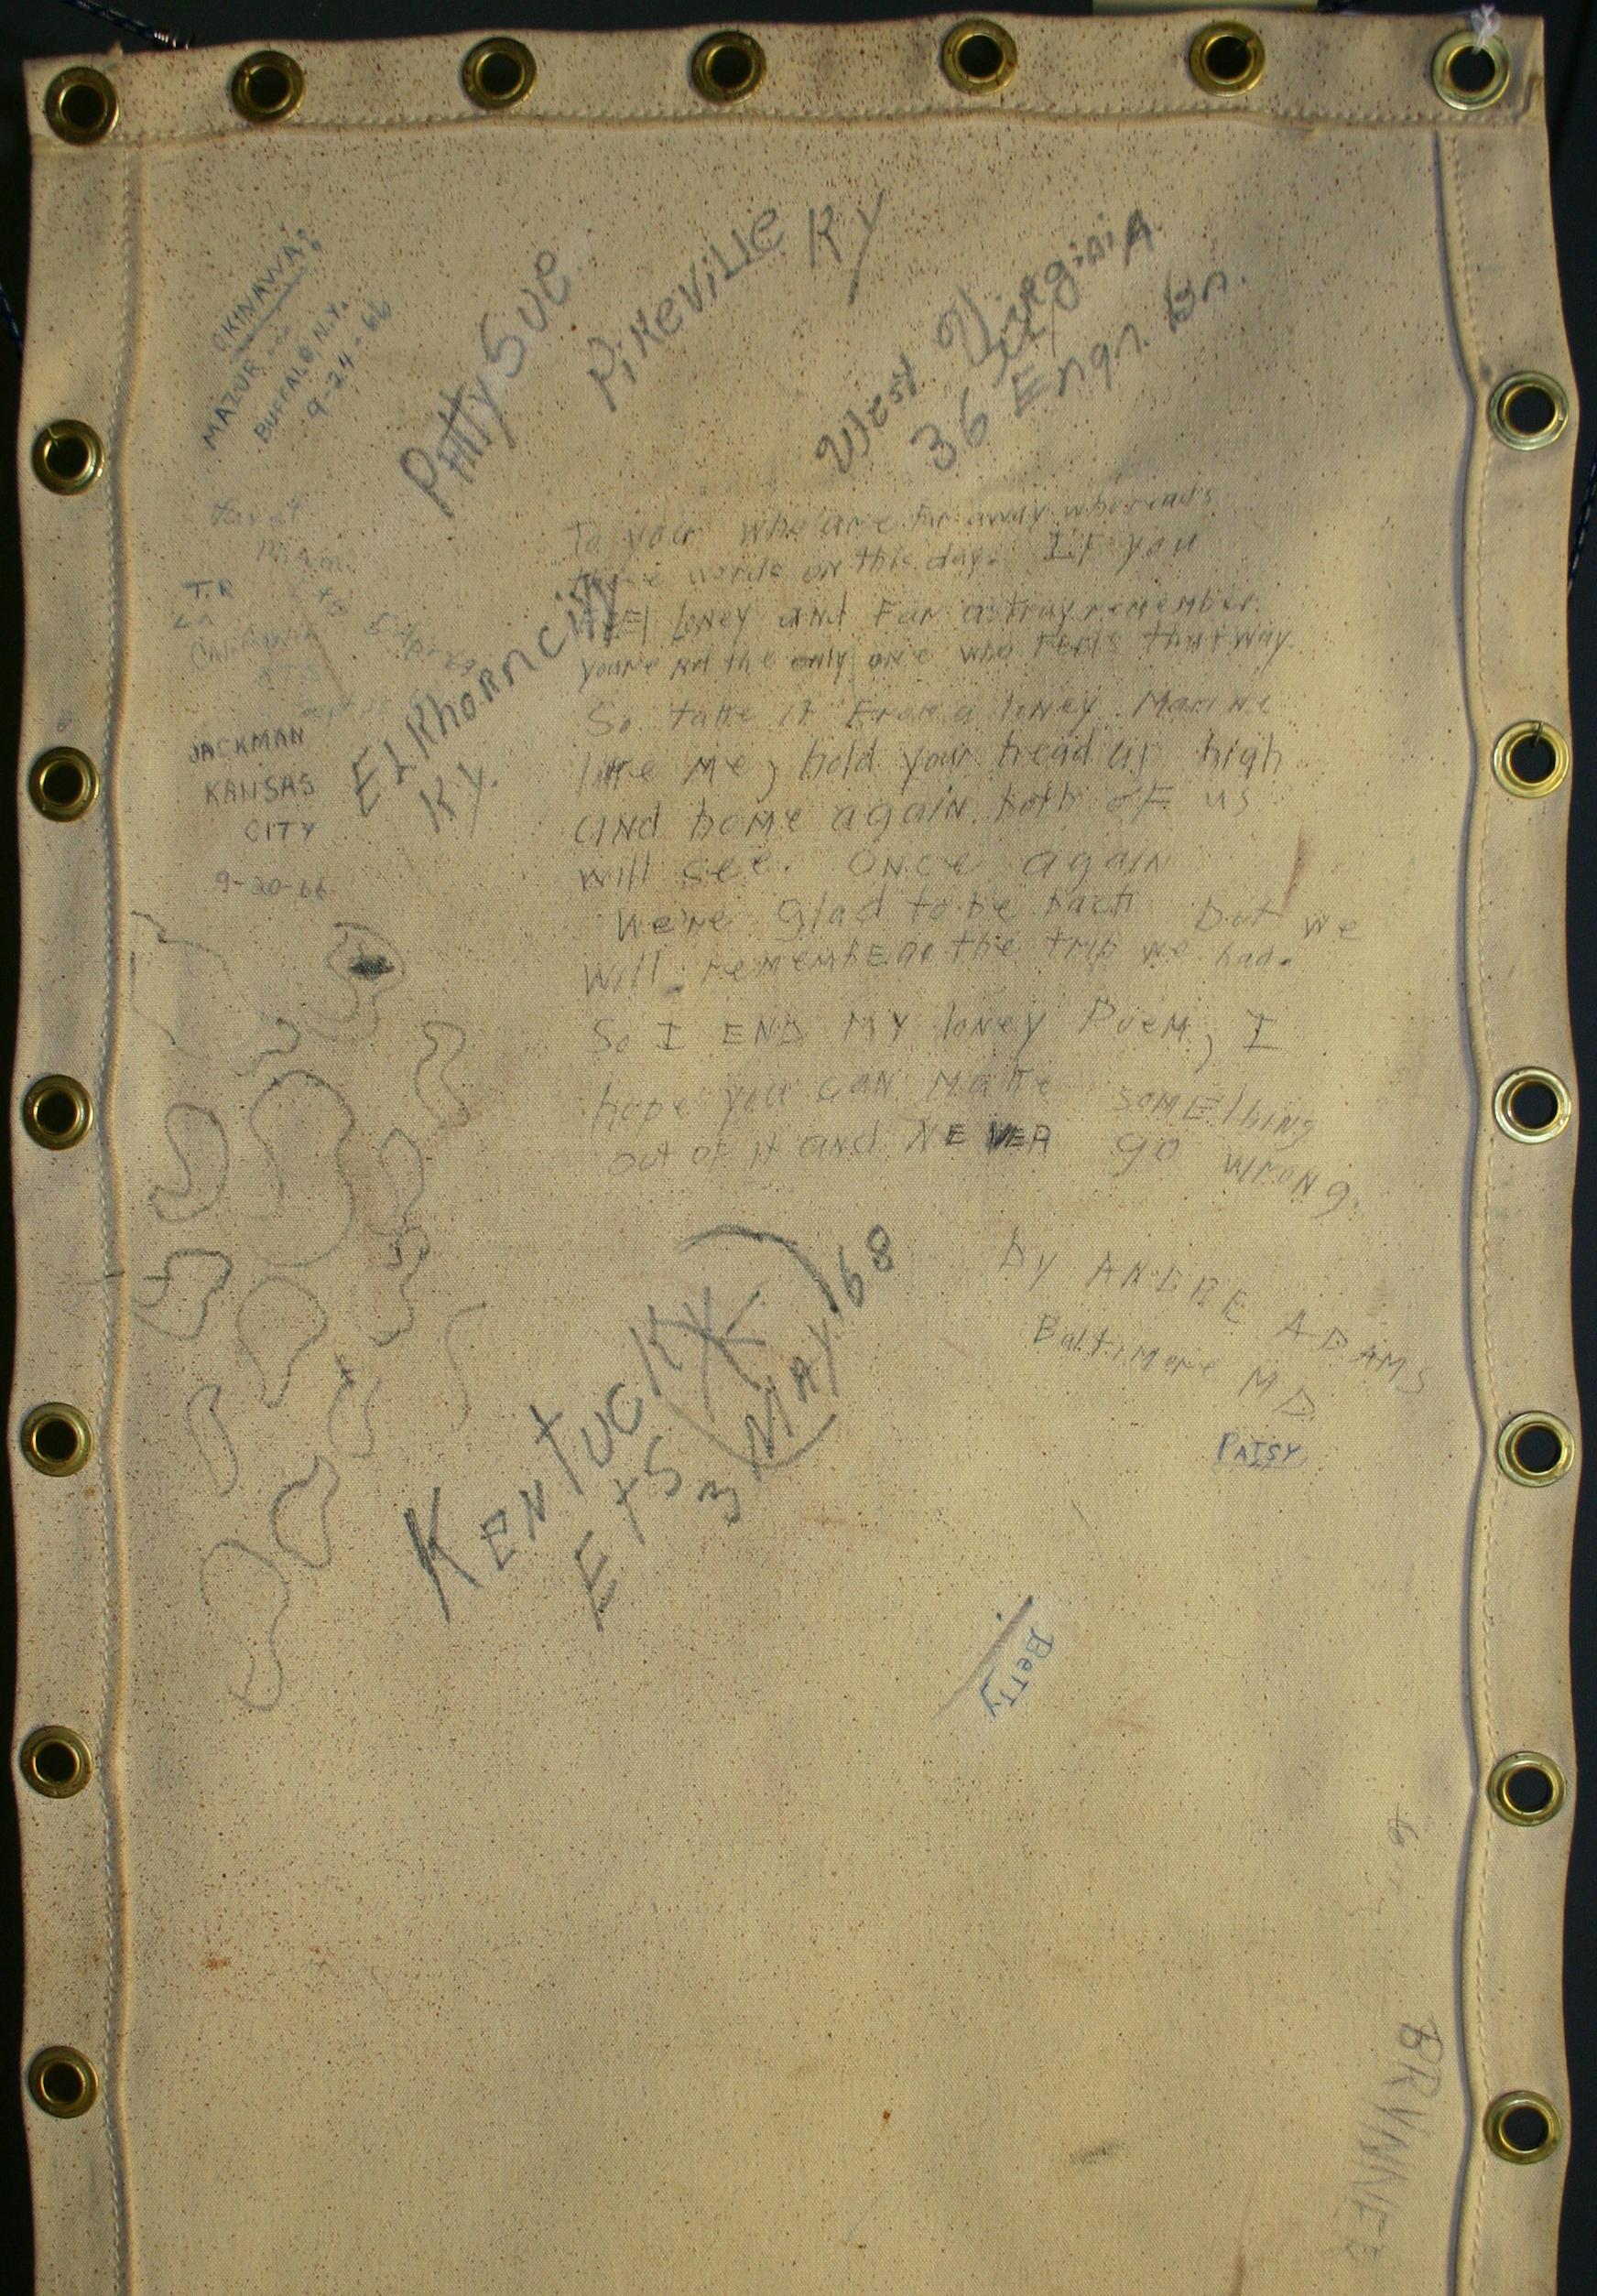 OKINAWA
MAZUR
BUFFALO, N.Y.
9-24-66
Patty Sue
Pikeville Ky
West Virginia
36 Engr. Bn.
T.R
JACKMAN
KANSAS
CITY
9-20-66
Elkhorn city
Ky.
To you who are far away who reads
these words on this day. IF you
FEEl loNey and Far astray remember
you're not the only one who Feels that way.
So take it From a loNey Marine
like Me, hold your head up high
aNd home again both oF us
will see. ONce again
We're glad to be back but we
will remember the trip we had.
So I END My loNey PoeM, I
hope you can Make SoMEthing
out of it and NEVER go wroNg.
by ANDRE ADAMS
BaltiMore MD
PAISY
KENTUCKY
ETS 3 MAY 68
Betty
BRYNNER